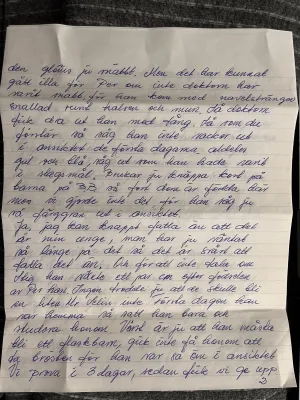 den glöms ju snabbt. Men det har kunnat
gått illa för Per om inte doktorn har
varit snabb för han kom med navelsträngen
snallad runt halsen och mun. Så doktorn
fick dra ut han med tång. Så som du
förstår så såg han inte vacker ut
i ansiktet de första dagarna alldeles
gul och blå, såg ut som han hade varit
i slagsmål. Brukar ju knäppa kort på
barna på BB så fort dom är födda här
men vi gjorde inte det för han såg ju
så färggrann ut i ansiktet
Ja, jag kan knappt fatta än att det
är min unge, man har ju väntat
så länge på det så det är svårt att
fatta det än.
Stig han
är Per han. Ingen trodde ju att de skulle bli
en liten
var hemma så satt han bara och
studera honom. Värst är ju att han måste
bli ett flaskbarn, gick inte få honom att
ta brösten för han var så öm i ansiktet
Vi prova i 3 dagar, sedan fick vi ge upp
2